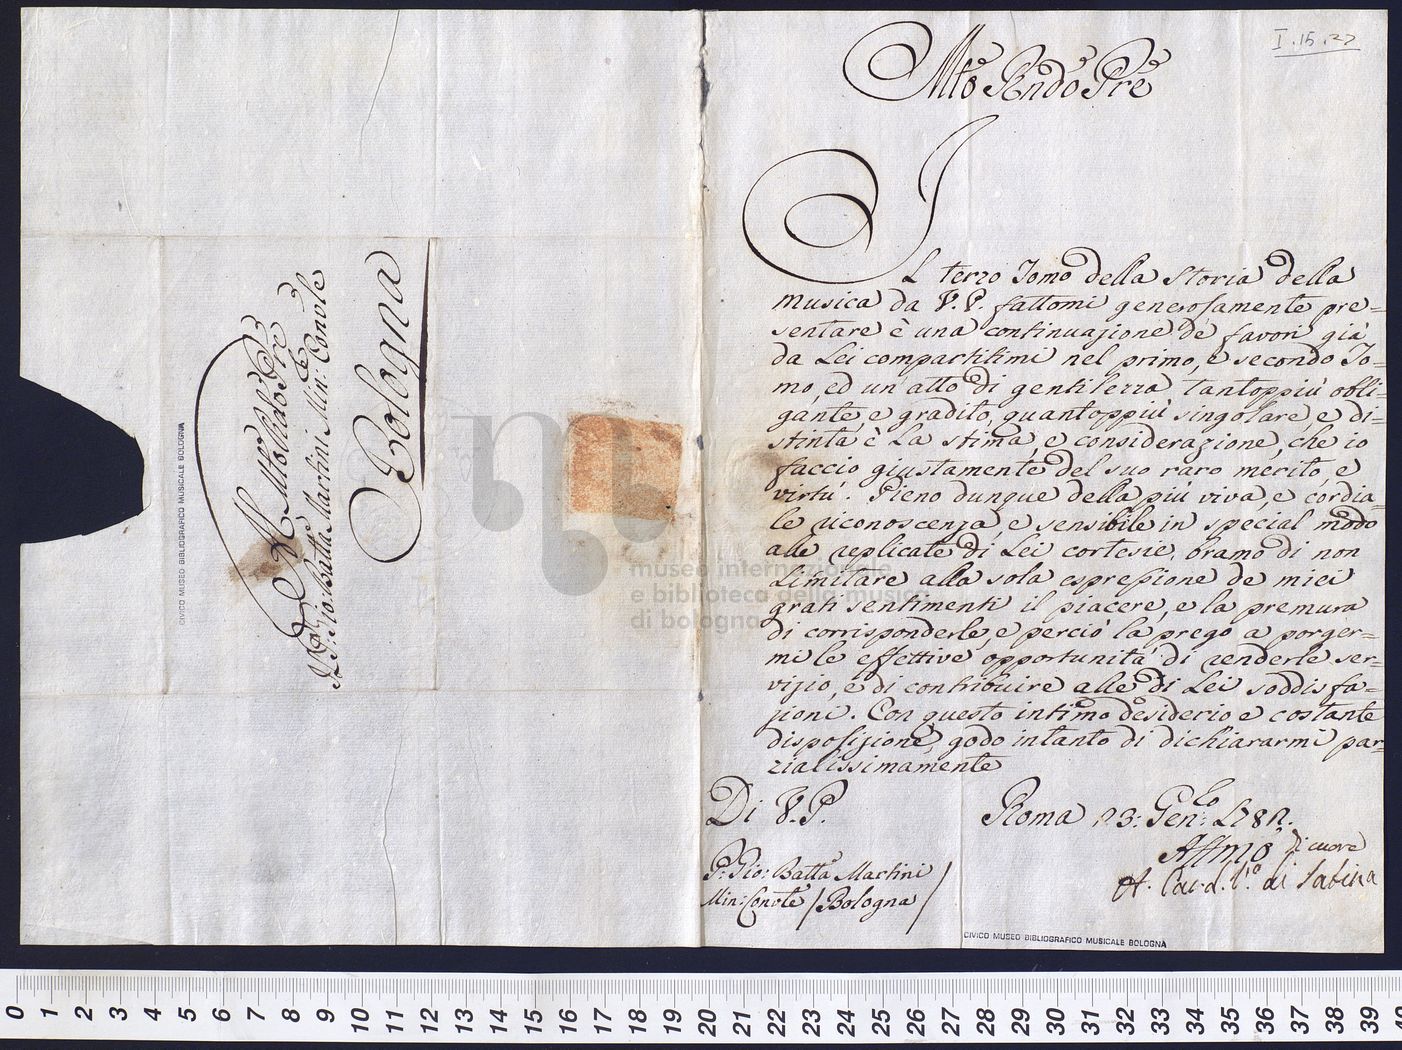 I.15.27
Mto Rndo Pre
IL terzo Tomo della Storia della
musica da V. P. fattomi generosamente pre=
sentare è una continuazione de' favori già
da Lei compartitimi nel primo, e secondo To=
mo, ed un atto di gentilezza tantoppiù obli=
gante, e gradito, quantoppiù singolare, e di=
stinta è la stima, e considerazione, che io
faccio giustamente del suo raro merito, e
virtù. Pieno dunque della più viva, e cordia=
le riconoscenza, e sensibile in special modo
alle replicate di Lei cortesie, bramo di non
limitare alla sola espressione de miei
grati sentimenti il piacere, e la premura
di corrisponderle, e perciò la prego a porger=
mi le effettive opportunità di renderle ser=
vizio, e di contribuire alle di Lei soddisfa=
zioni. Con questo intimo desiderio e costante
disposizione, godo intanto di dichiararmi par=
zialissimamente
Di V. P.
Roma 23: Genlo: 1782.
Affmo di cuore
A. Card. di Sabina
P: Gio: Batta Martini
Min: Conole / Bologna /
Al Mto Rndo Pre
Il P: Gio: Batta Martini Min: Convle
Bologna
CIVICO MUSEO BIBLIOGRAFICO MUSICALE BOLOGNA
CIVICO MUSEO BIBLIOGRAFICO MUSICALE BOLOGNA
museo internazionale
e biblioteca della musica
di bologna
0 1 2 3 4 5 6 7 8 9 10 11 12 13 14 15 16 17 18 19 20 21 22 23 24 25 26 27 28 29 30 31 32 33 34 35 36 37 38 39 40